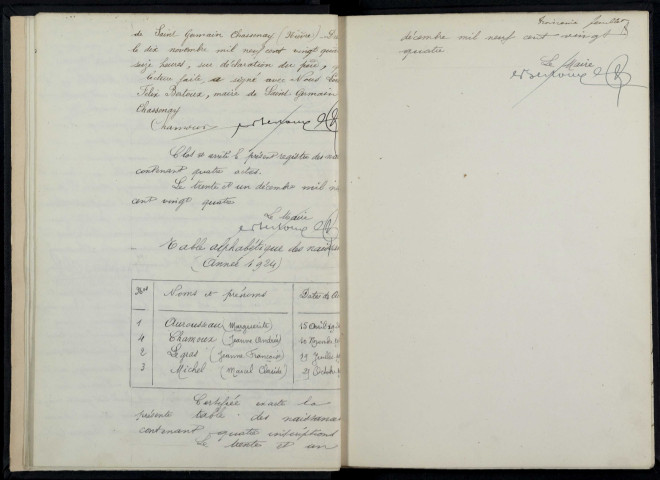 de Saint Germain Chassenay (Nièvre)
le dix novembre mil neuf cent vingt
seize heures, sur déclaration du père,
lecture faite, a signé avec Nous
Felix Bertoux, maire de Saint Germain
Chassenay
Chamoux
Clos et arrêté le présent registre des
contenant quatre actes.
Le trente et un décembre mil
cent vingt quatre
Le Maire
Table alphabétique des nais
(Année 1924)
Nos Noms et prénoms Dates de
1 Aurousseau (Marguerite) 15 Avril
4 Chamoux (Jeanne Andrée) 10 Novembre
2 Legras (Jeanne Françoise) Juillet
3 Michel (Marcel Claude) Octobre
Certifiée exacte la
présente table des naissances
contenant quatre inscriptions
le trente et un
feuillet
décembre mil neuf cent vingt
quatre
Le Maire